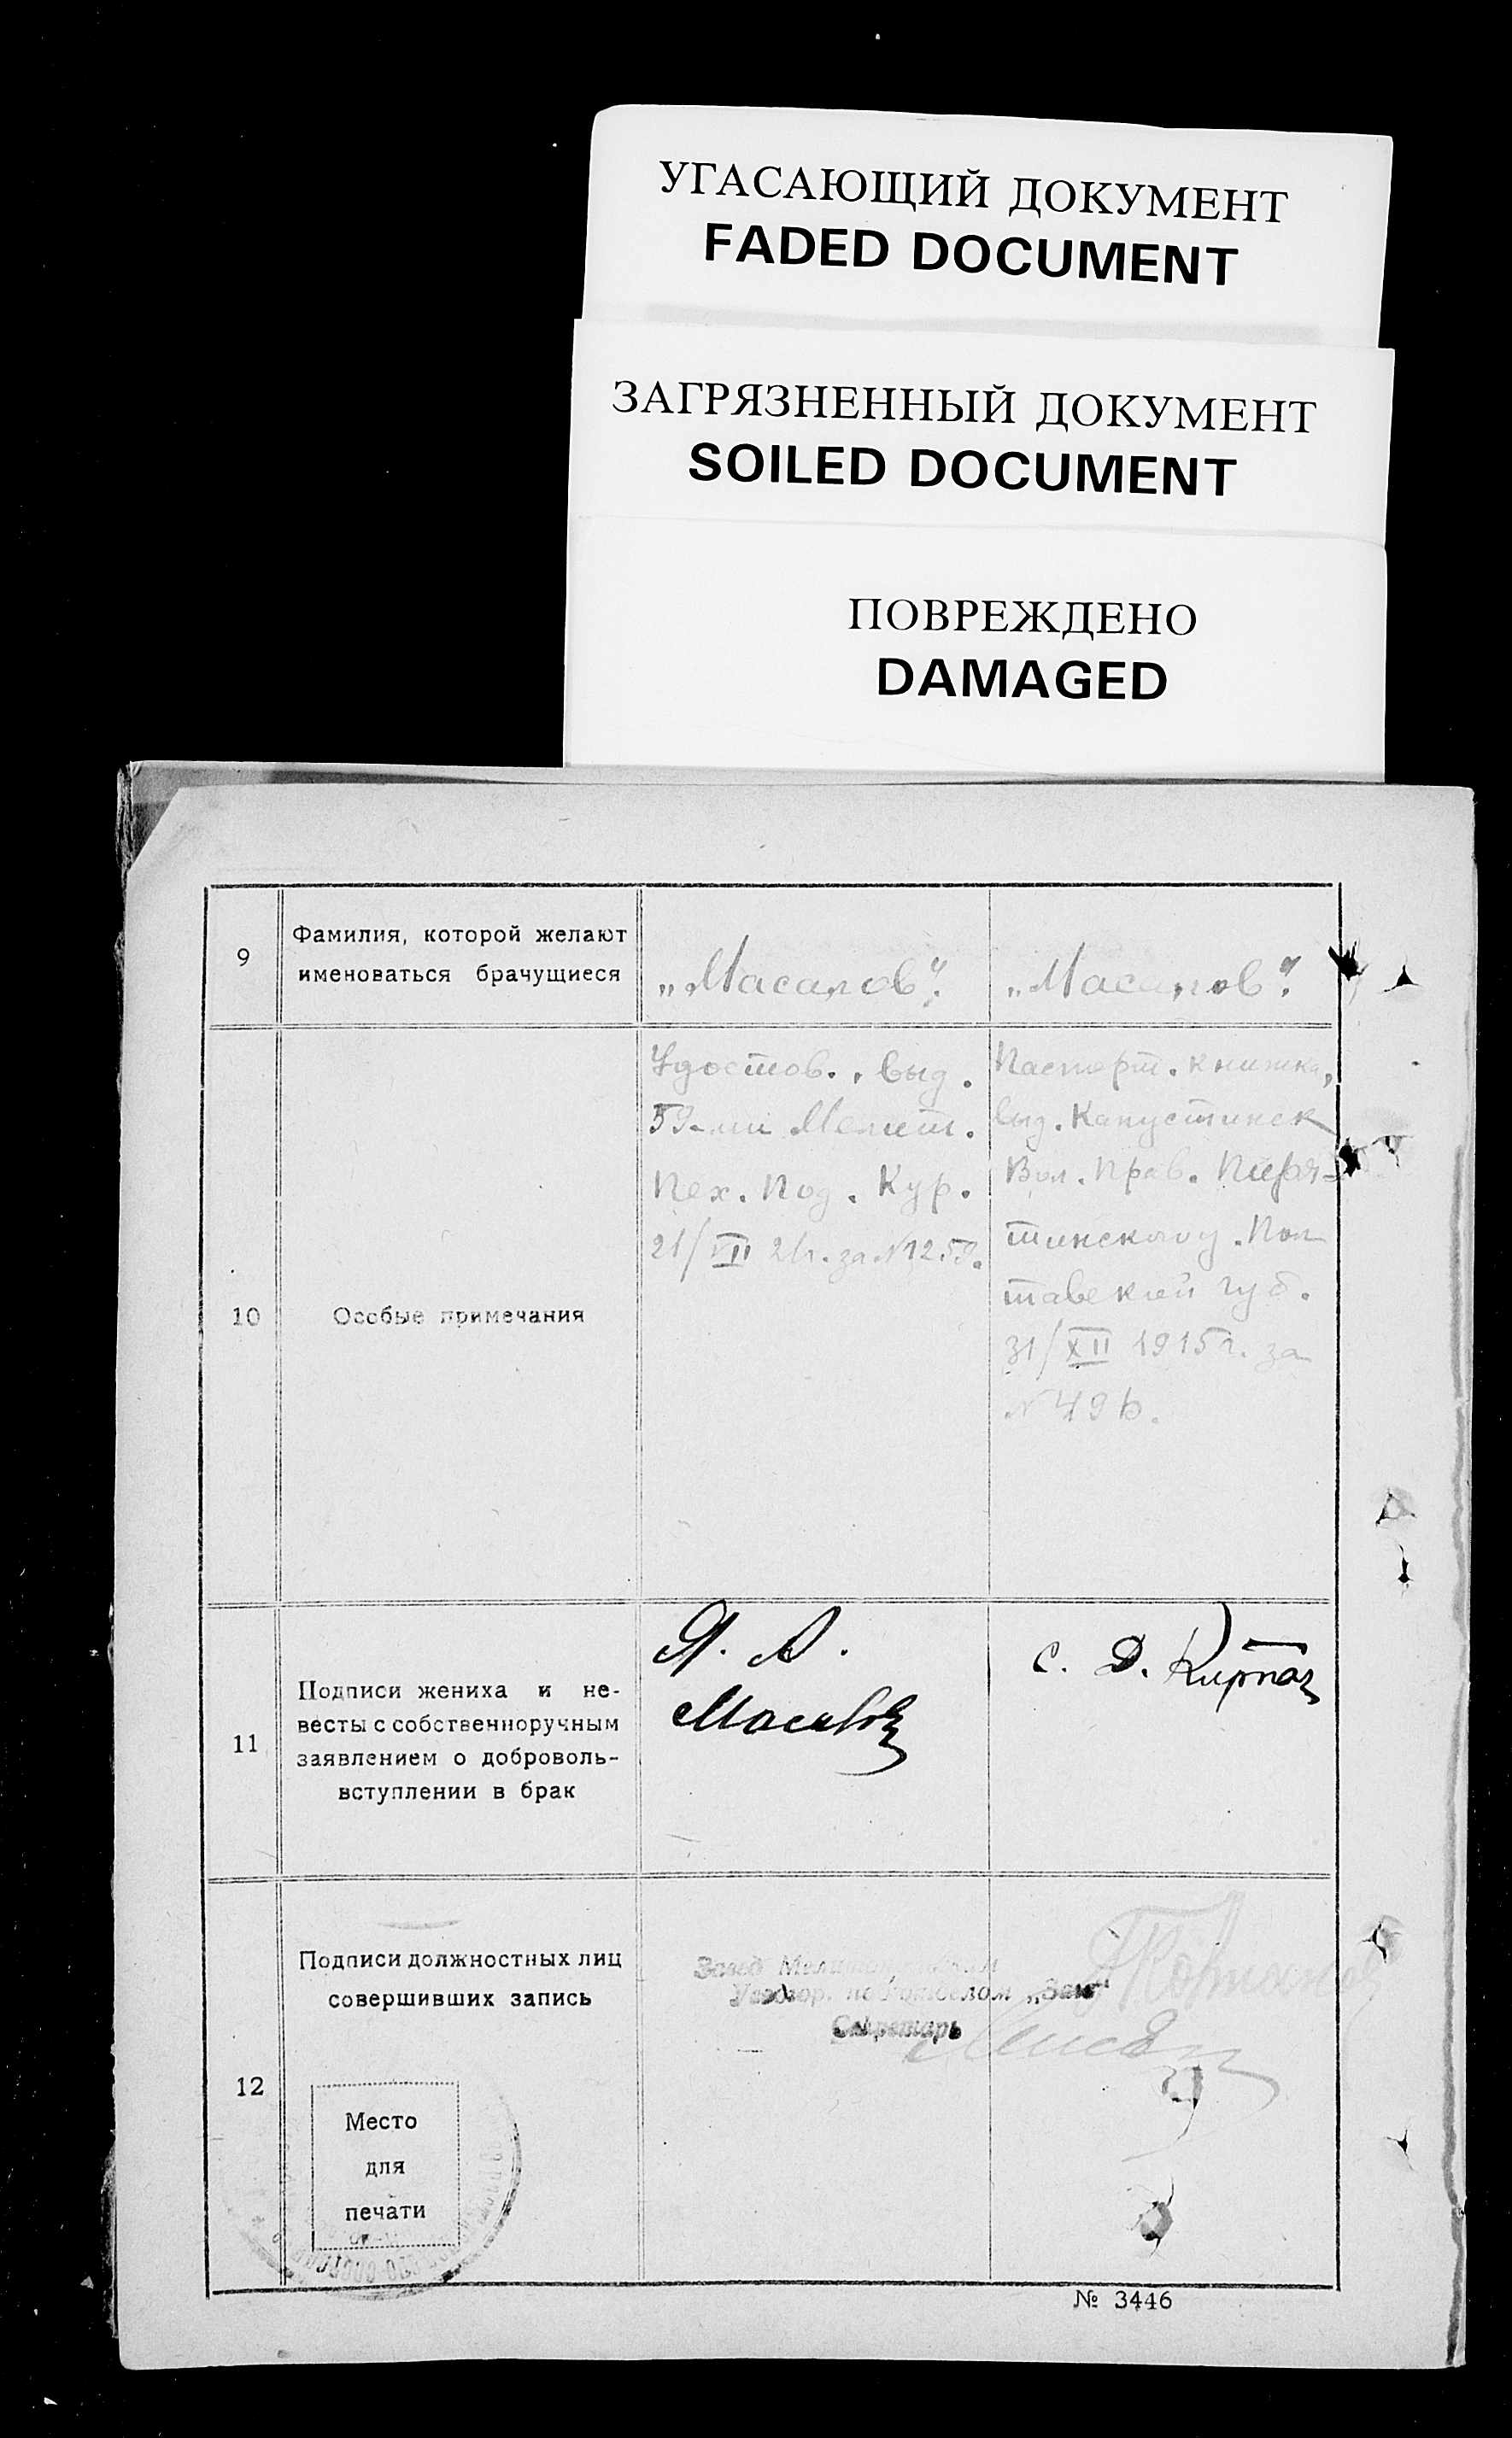 УГАСАЮЩИЙ ДОКУМЕНТ
FADED DOCUMENT
ЗАГРЯЗНЕННЫЙ ДОКУМЕНТ
SOILED DOCUMENT
ПОВРЕЖДЕНО
DAMAGED
9
Фамилия, которой желают
именоваться брачущиеся
„Масалов“.
„Масалов“.
10
Особые примечания
Удостов., выд.
59-ми Мелит.
Пех. Под. Кур.
21/VII 21г. за №1259.
Паспорт. книжка,
выд. Капустинск
Вол. Прав. Пиря-
тинского у. Пол
тавской губ.
31/XII 1915г. за
№ 496.
11
Подписи жениха и не-
весты с собственноручным
заявлением о доброволь-
вступлении в брак
Я. А.
Масалов
С. Д. Киртаз
12
Подписи должностных лиц
совершивших запись
Секретарь
Место
для
печати
№ 3446